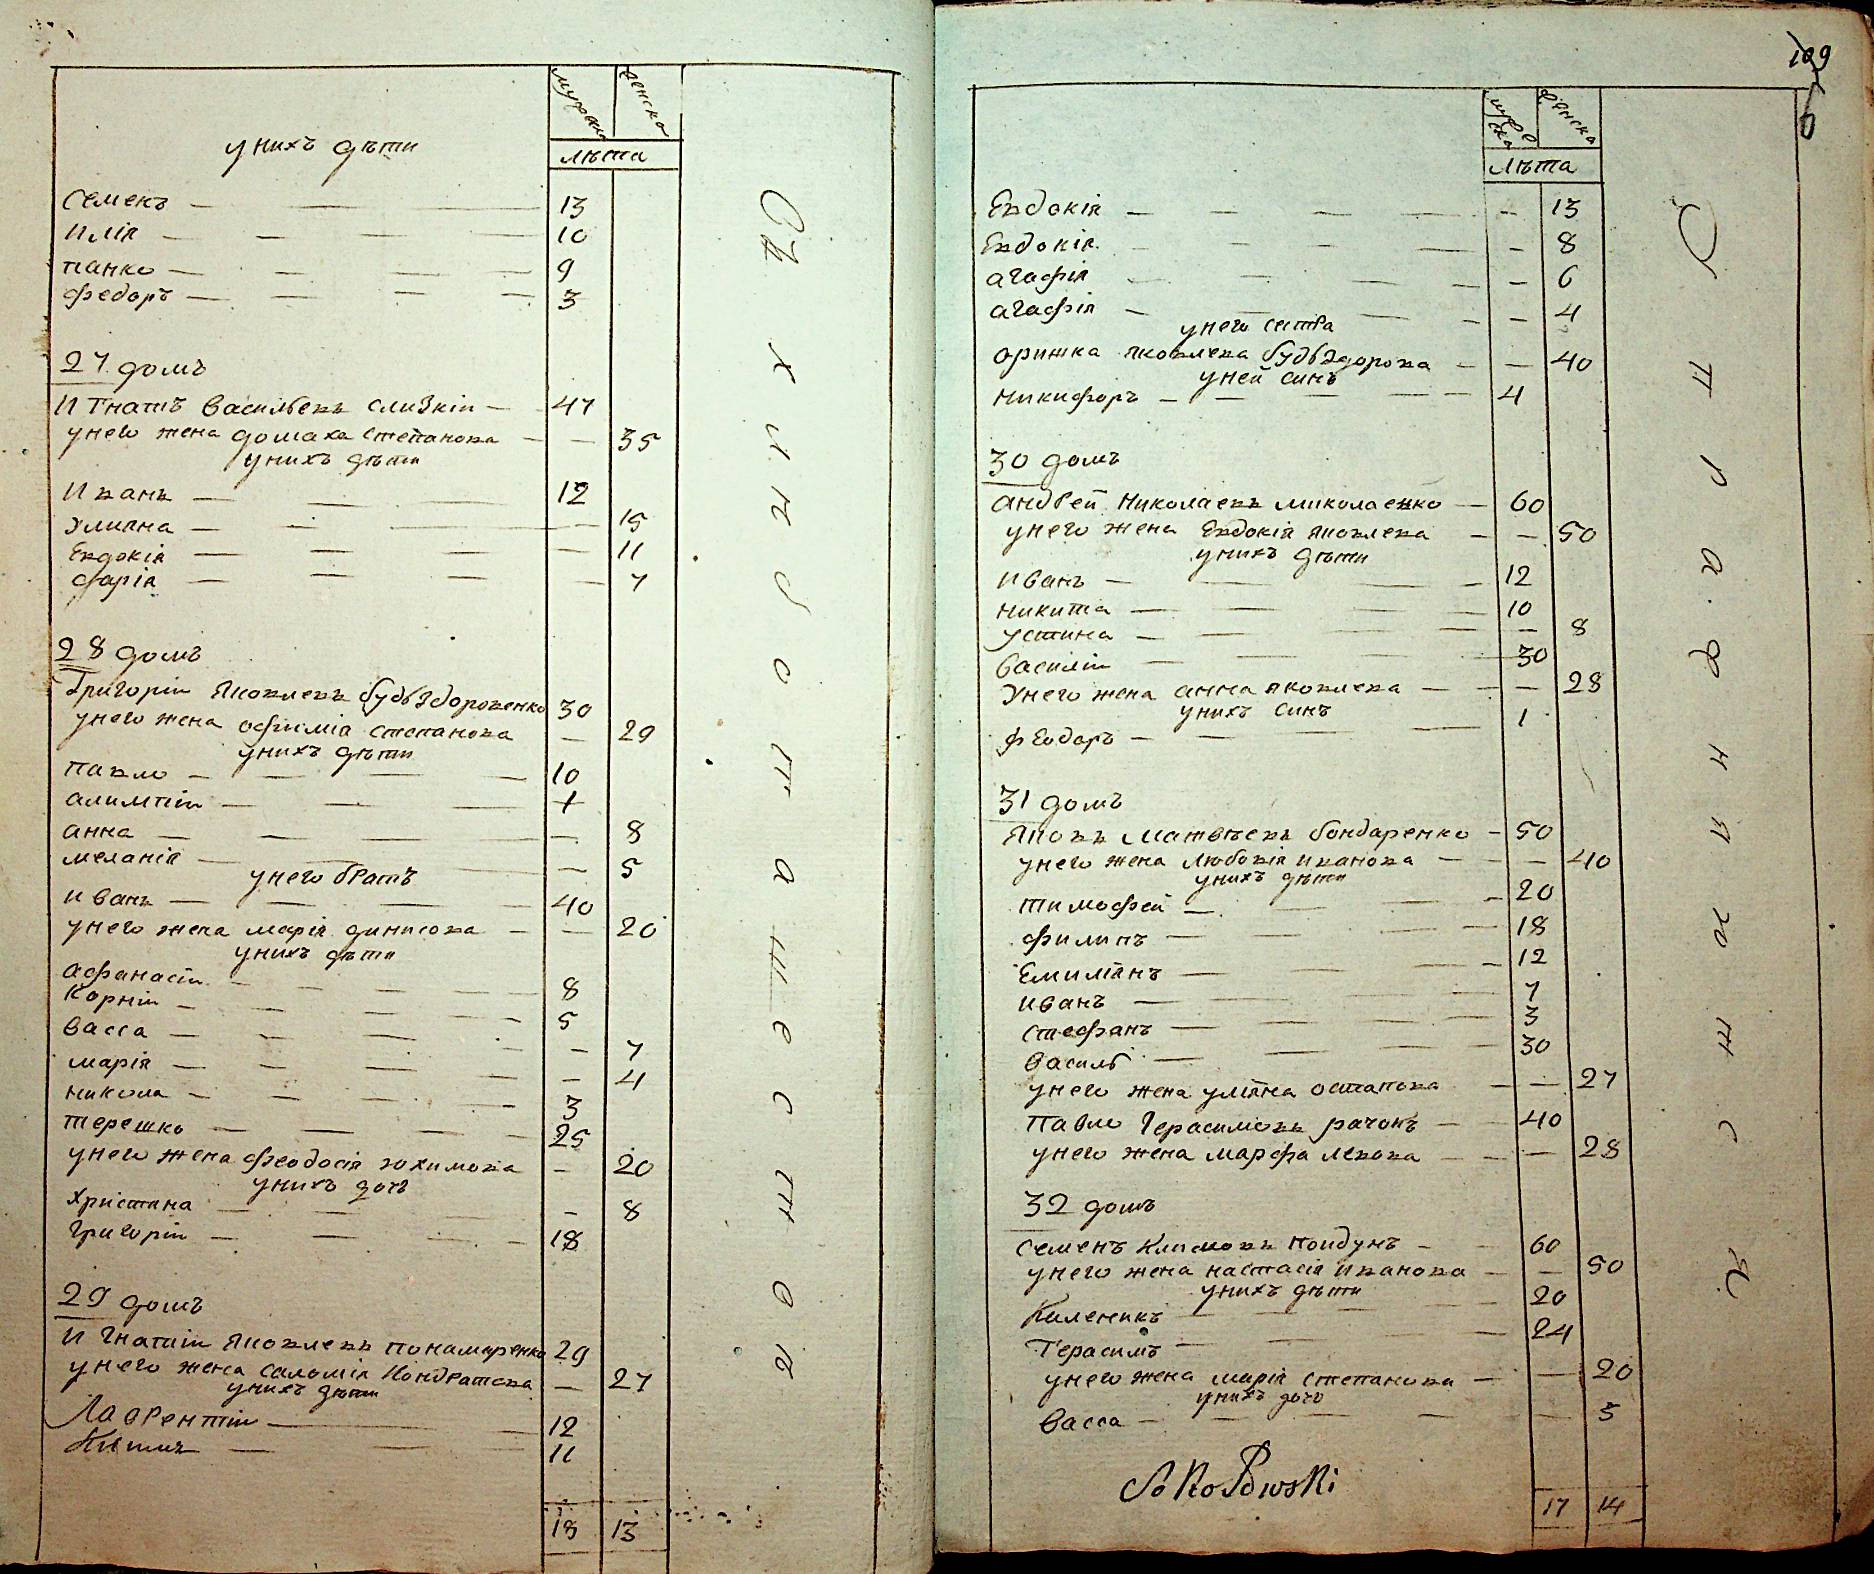 мужеска женска
у нихъ дѣти
лѣта
Семенъ — — — 13
Илія — — — 10
панко — — — 9
Федоръ — — — 3
27 домъ
Игнатъ Васильевъ Слизкій — 47
у него жена домаха Степанова — — 35
у нихъ дѣти
Иванъ — — — 12
Улияна — — — 15
Евдокія — — — 11
фарія — — — 7
28 домъ
Григорій Яковлевъ будьздоровенко 30
у него жена офимія степанова — 29
у нихъ дѣти
Павло — — — 10
алимпій — — — 7
анна — — — 8
меланія — — 5
у него братъ
иванъ — — — 40
у него жена марія динисова — — 20
у нихъ дѣти
афанасій — — — 8
Корній — — — 5
васса — — — 7
марія — — — 4
никола — — — 3
терешко — — — 25
у него жена феодосія юхимова — 20
у нихъ дочь
Христина — — — 8
Григорій — — — 18
29 домъ
Игнатій Яковлевъ понамаренко 29
у него жена Саломія Кондратова — 27
у нихъ дѣти
Лаврентій — — 12
Климъ — — 11
18 13
Съ хинбопашесттовъ
109
6
мужеска женска
лѣта
Евдокія — — — 13
Евдокія — — — 8
агафія — — — 6
агафія — — — 4
у него систра
оришка яковлева будьздорова — — 40
у ней синъ
никифоръ — — — 4
30 домъ
андрей Николаевъ миколаенко — 60
у него жена Евдокія яковлева — — 50
у нихъ дѣти
иванъ — — — 12
никита — — — 10
устина — — — 8
василій — — — 30
у него жена анна яковлева — — 28
у нихъ синъ
феодоръ — — — 1
31 домъ
Яковъ Матвѣевъ бондаренко — 50
у него жена любовія иванова — — 40
у нихъ дѣти
тимофей — — — 20
филипъ — — — 18
Емиліанъ — — — 12
иванъ — — — 7
стефанъ — — — 3
василь — — — 30
у него жена уліяна остапова — — 27
павло Герасимовъ рачокъ — — 40
у него жена марфа левова — — 28
32 домъ
Семенъ Климовъ Пойдунъ — 60
у него жена настасія иванова — — 50
у нихъ дѣти
Киленикъ — — — 20
Герасимъ — — — 24
у него жена марія степанова — — 20
у нихъ дочь
Васса — — — 5
SoKoLowsKi
17 14
Упрафняютсѧ